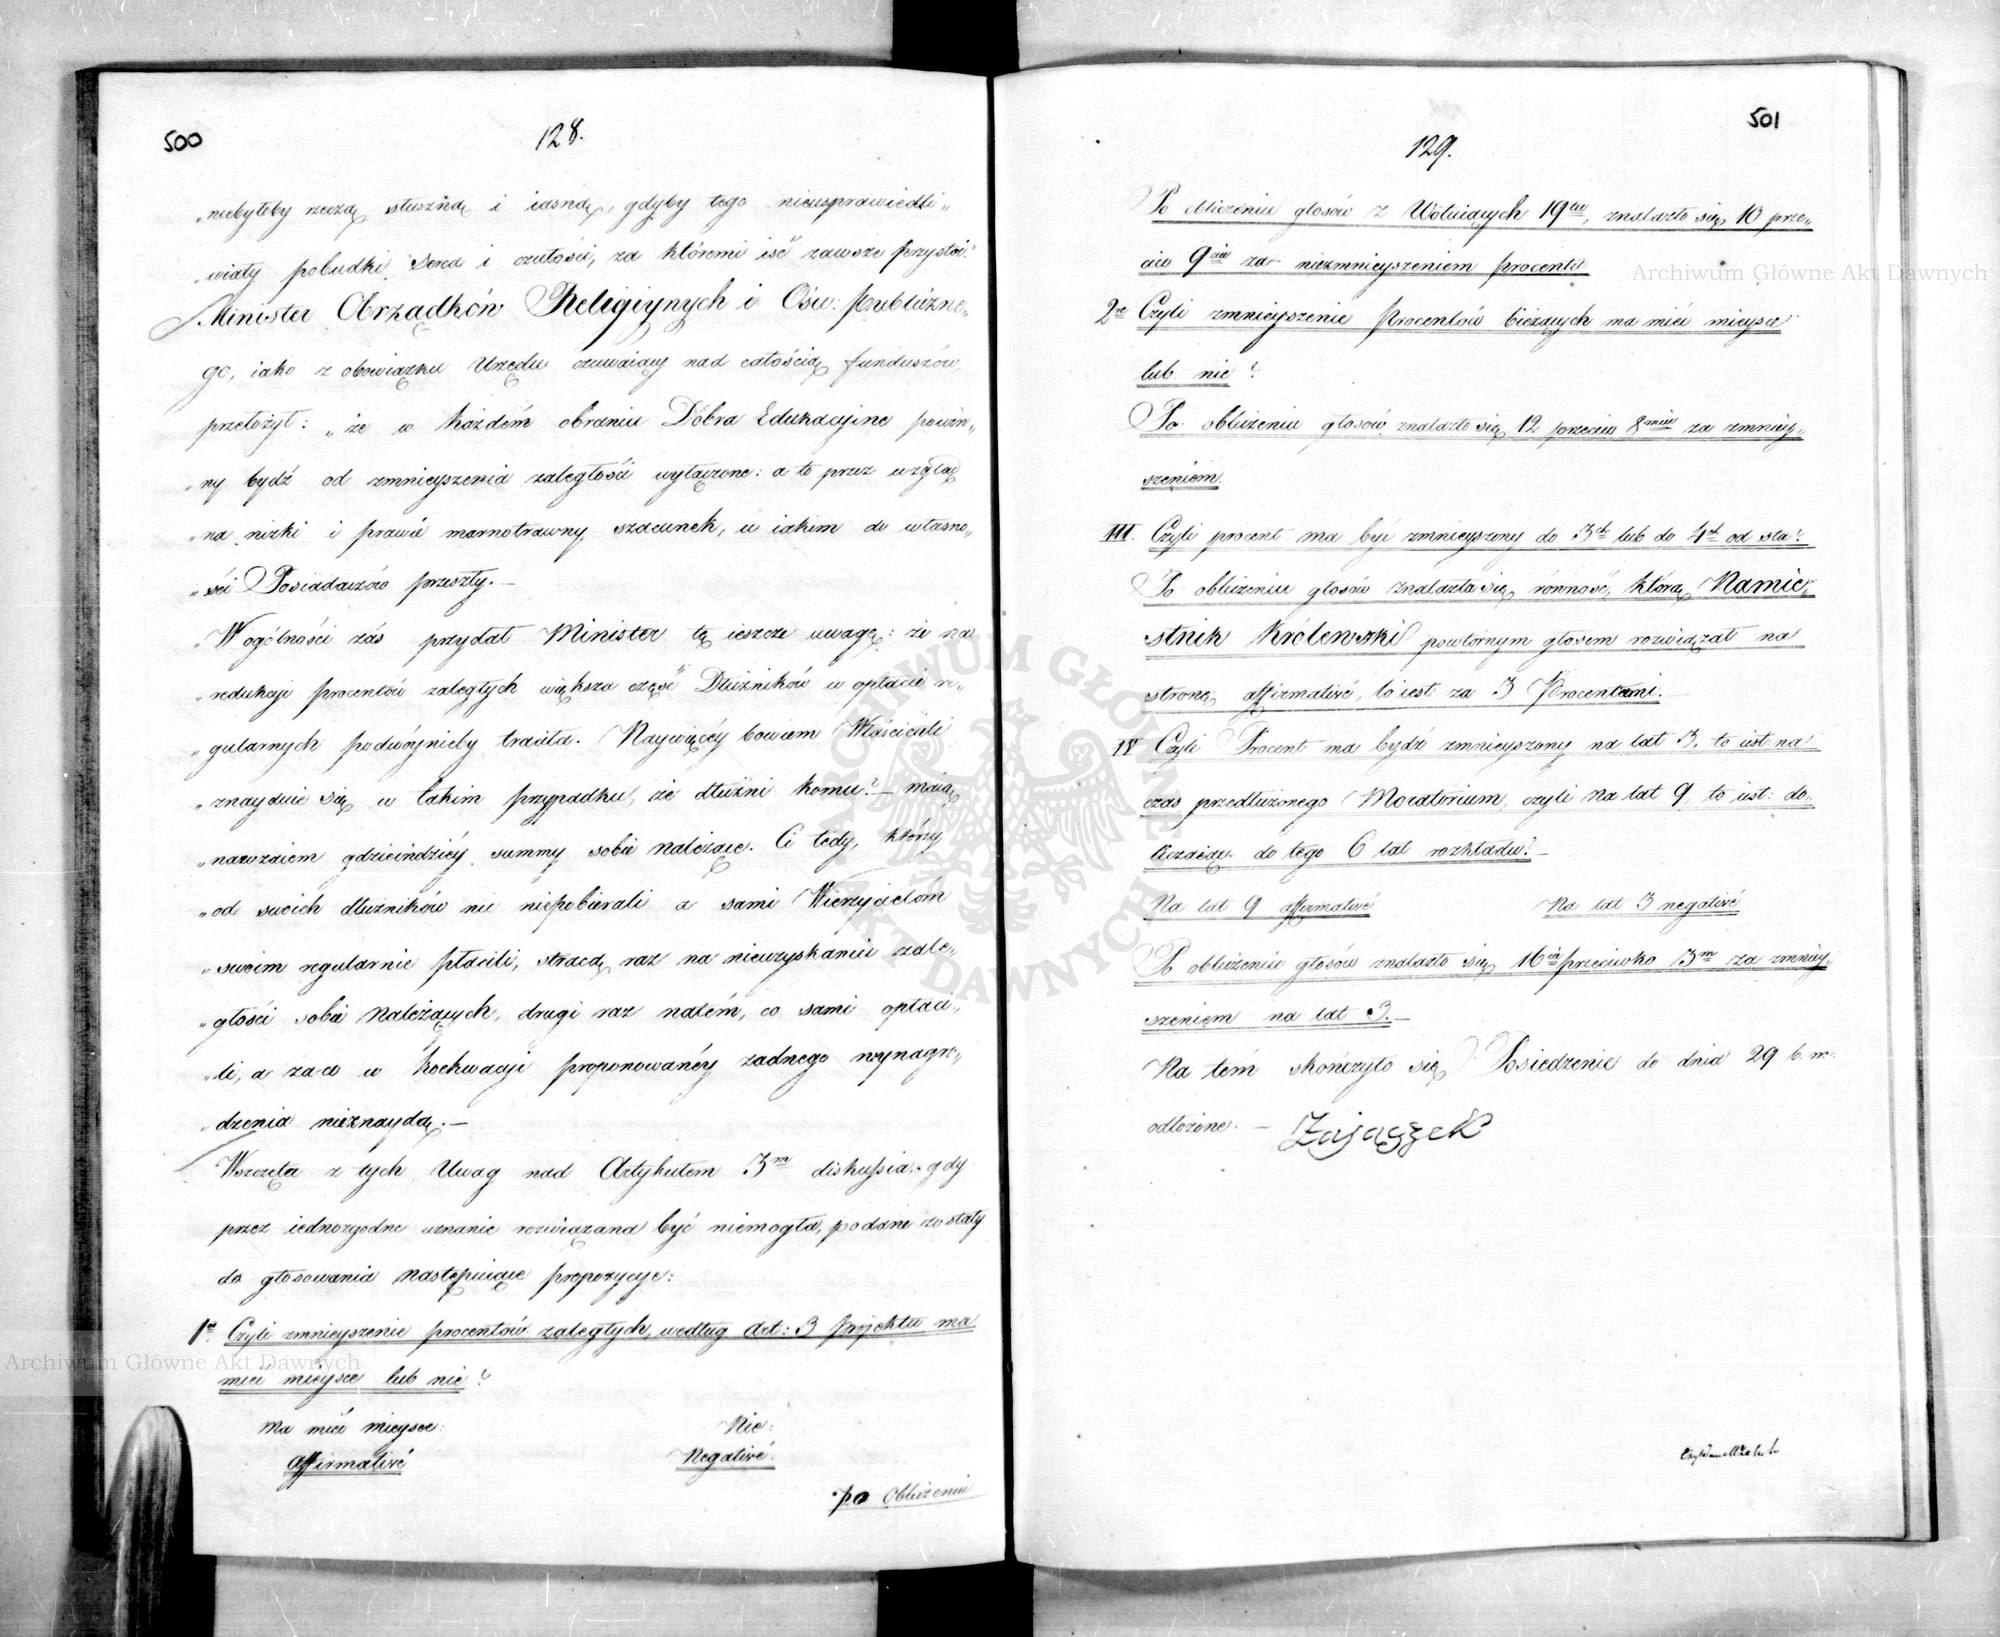 500
128.
„niebyłoby rzeczą słuszną i iasną, gdyby tego nieusprawiedli„
„wiały pobudki Serca i czułości, za któremi iść zawsze przystoi."
Minister Obrządków Religiynych i Ośw: Publiczne„
go, iako z obowiązku Urzędu czuwaiący nad całością funduszów,
przełożył: „że w każdém obraniu Dobra Edukacyine powin„
„ny bydź od zmnieyszenia zaległości wyłączone: a to przez wzgląd
„na nizki i prawie marnotrawny szacunek, w iakim do własno„
„ści Posiadaczów przeszły.—
„W ogólności zaś przydał Minister tę ieszcze uwagę: że na
„redukcji procentów zaległych większa część Dłużników w opłacie re„
„gularnych podwóynieby traciła. Naywięcéy bowiem Właścicieli
„znayduie się w takim przypadku, że dłużni komu? — maią
„nawzaiem gdzieindziéy summy sobie należące. Ci tedy, którzy
„od swoich dłużników nic niepobierali a sami Wierzycielóm
„swoim regularnie płacili, stracą raz na nieuzyskaniu zale„
„głości sobie należących, drugi raz na tém, co sami opłaci„
„li, a za co w proponowanéy żadnego wynagro„
„dzenia nieznaydą.—
Wszczęta z tych Uwag nad Artykułem 3m diskussia, gdy
przez iednozgodne uznanie rozwiązana być niemogła, podane zostały
do głosowania następuiące propozycye:
1e Czyli zmnieyszenie procentów zaległych, według Art: 3 projektu ma
mieć mieysce lub nie?
Ma mieć mieysce: Nie:
Affirmativé Negativé.
po Obliczeniu
501
129.
Po obliczeniu głosów z Wotuiących 19tu, znalazło się 10 prze„
ciw 9ciu za niezmnieyszeniem procentu
2e Czyli zmnieyszenie Procentów bieżących ma mieć mieysce
lub nie?
Po obliczeniu głosów znalazło się 12 przeciw 8miu za zmniey„
szeniem.
III. Czyli procent ma być zmnieyszony do 3ch lub do 4ch od sta?
Po obliczeniu głosów znalazła się równość, którą Namie„
stnik Królewski powtórnym głosem rozwiązał na
stronę affirmativé, to iest za 3 Procentami.—
IV Czyli Procent ma bydź zmnieyszony na lat 3. to iest: na
czas przedłużonego Moratorium, czyli na lat 9, to iest: do„
liczaiąc do tego 6 lat rozkładu?—
Na lat 9 affirmativé Na lat 3 negativé
Po obliczeniu głosów znalazło się 16cie przeciwko 3m za zmniey„
szeniem na lat 3.—
Na tém skończyło się Posiedzenie do dnia 29 b. m.
odłożone.— Zajączek
Archiwum Główne Akt Dawnych
Archiwum Główne Akt Dawnych
ARCHIWUM GŁÓWNE AKT DAWNYCH